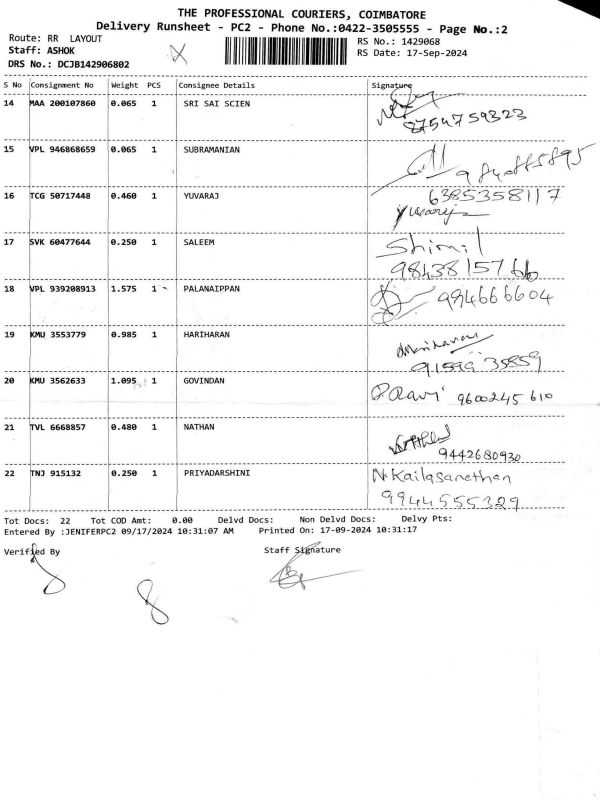 THE PROFESSIONAL COURIERS, COIMBATORE
Delivery Runsheet - PC2 - Phone No.:0422-3505555 - Page No.:2
Route: RR LAYOUT
Staff: ASHOK
DRS No.: DCJB142906802
RS No.: 1429068
RS Date: 17-Sep-2024
S No Consignment No Weight PCS Consignee Details Signature
14 MAA 200107860 0.065 1 SRI SAI SCIEN
8754759323
15 VPL 946868659 0.065 1 SUBRAMANIAN
16 TCG 50717448 0.460 1 YUVARAJ 6385358117
Yuvaraj
17 SVK 60477644 0.250 1 SALEEM Shimil
9843815766
18 VPL 939208913 1.575 1 PALANAIPPAN 994666604
19 KMU 3553779 0.985 1 HARIHARAN Hariharan
9159935859
20 KMU 3562633 1.095 1 GOVINDAN P Ravi 9600245610
21 TVL 6668857 0.480 1 NATHAN
9442680930
22 TNJ 915132 0.250 1 PRIYADARSHINI N. Kailasanathan
9944555329
Tot Docs: 22 Tot COD Amt: 0.00 Delvd Docs: Non Delvd Docs: Delvy Pts:
Entered By :JENIFERPC2 09/17/2024 10:31:07 AM Printed On: 17-09-2024 10:31:17
Verified By Staff Signature